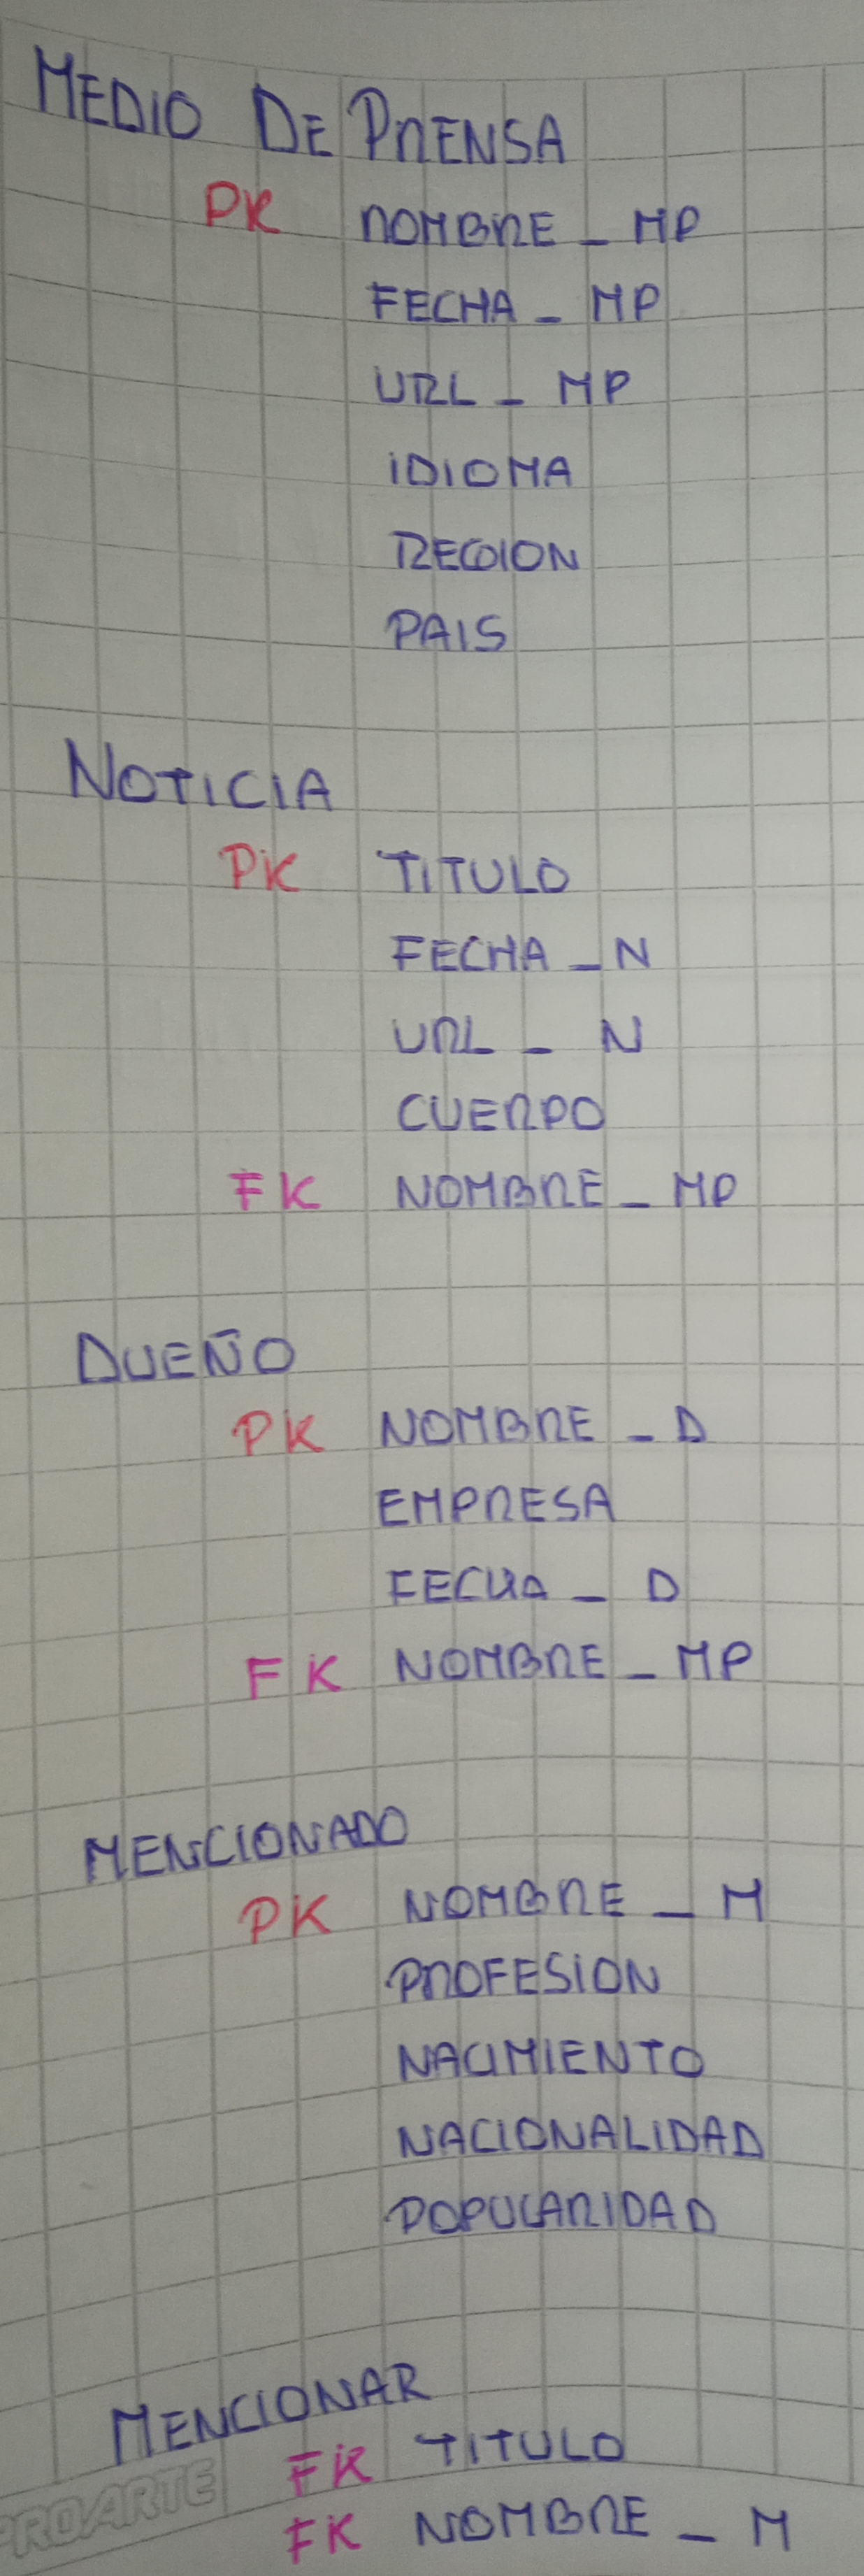 MEDIO DE PRENSA
PK NOMBRE _ MP
FECHA _ MP
URL _ MP
IDIOMA
REGION
PAIS
NOTICIA
PK TITULO
FECHA _ N
URL _ N
CUERPO
FK NOMBRE _ MP
DUEÑO
PK NOMBRE _ D
EMPRESA
FECHA _ D
FK NOMBRE _ MP
MENCIONADO
PK NOMBRE _ M
PROFESION
NACIMIENTO
NACIONALIDAD
POPULARIDAD
MENCIONAR
FK TITULO
PROARTE
FK NOMBRE _ M